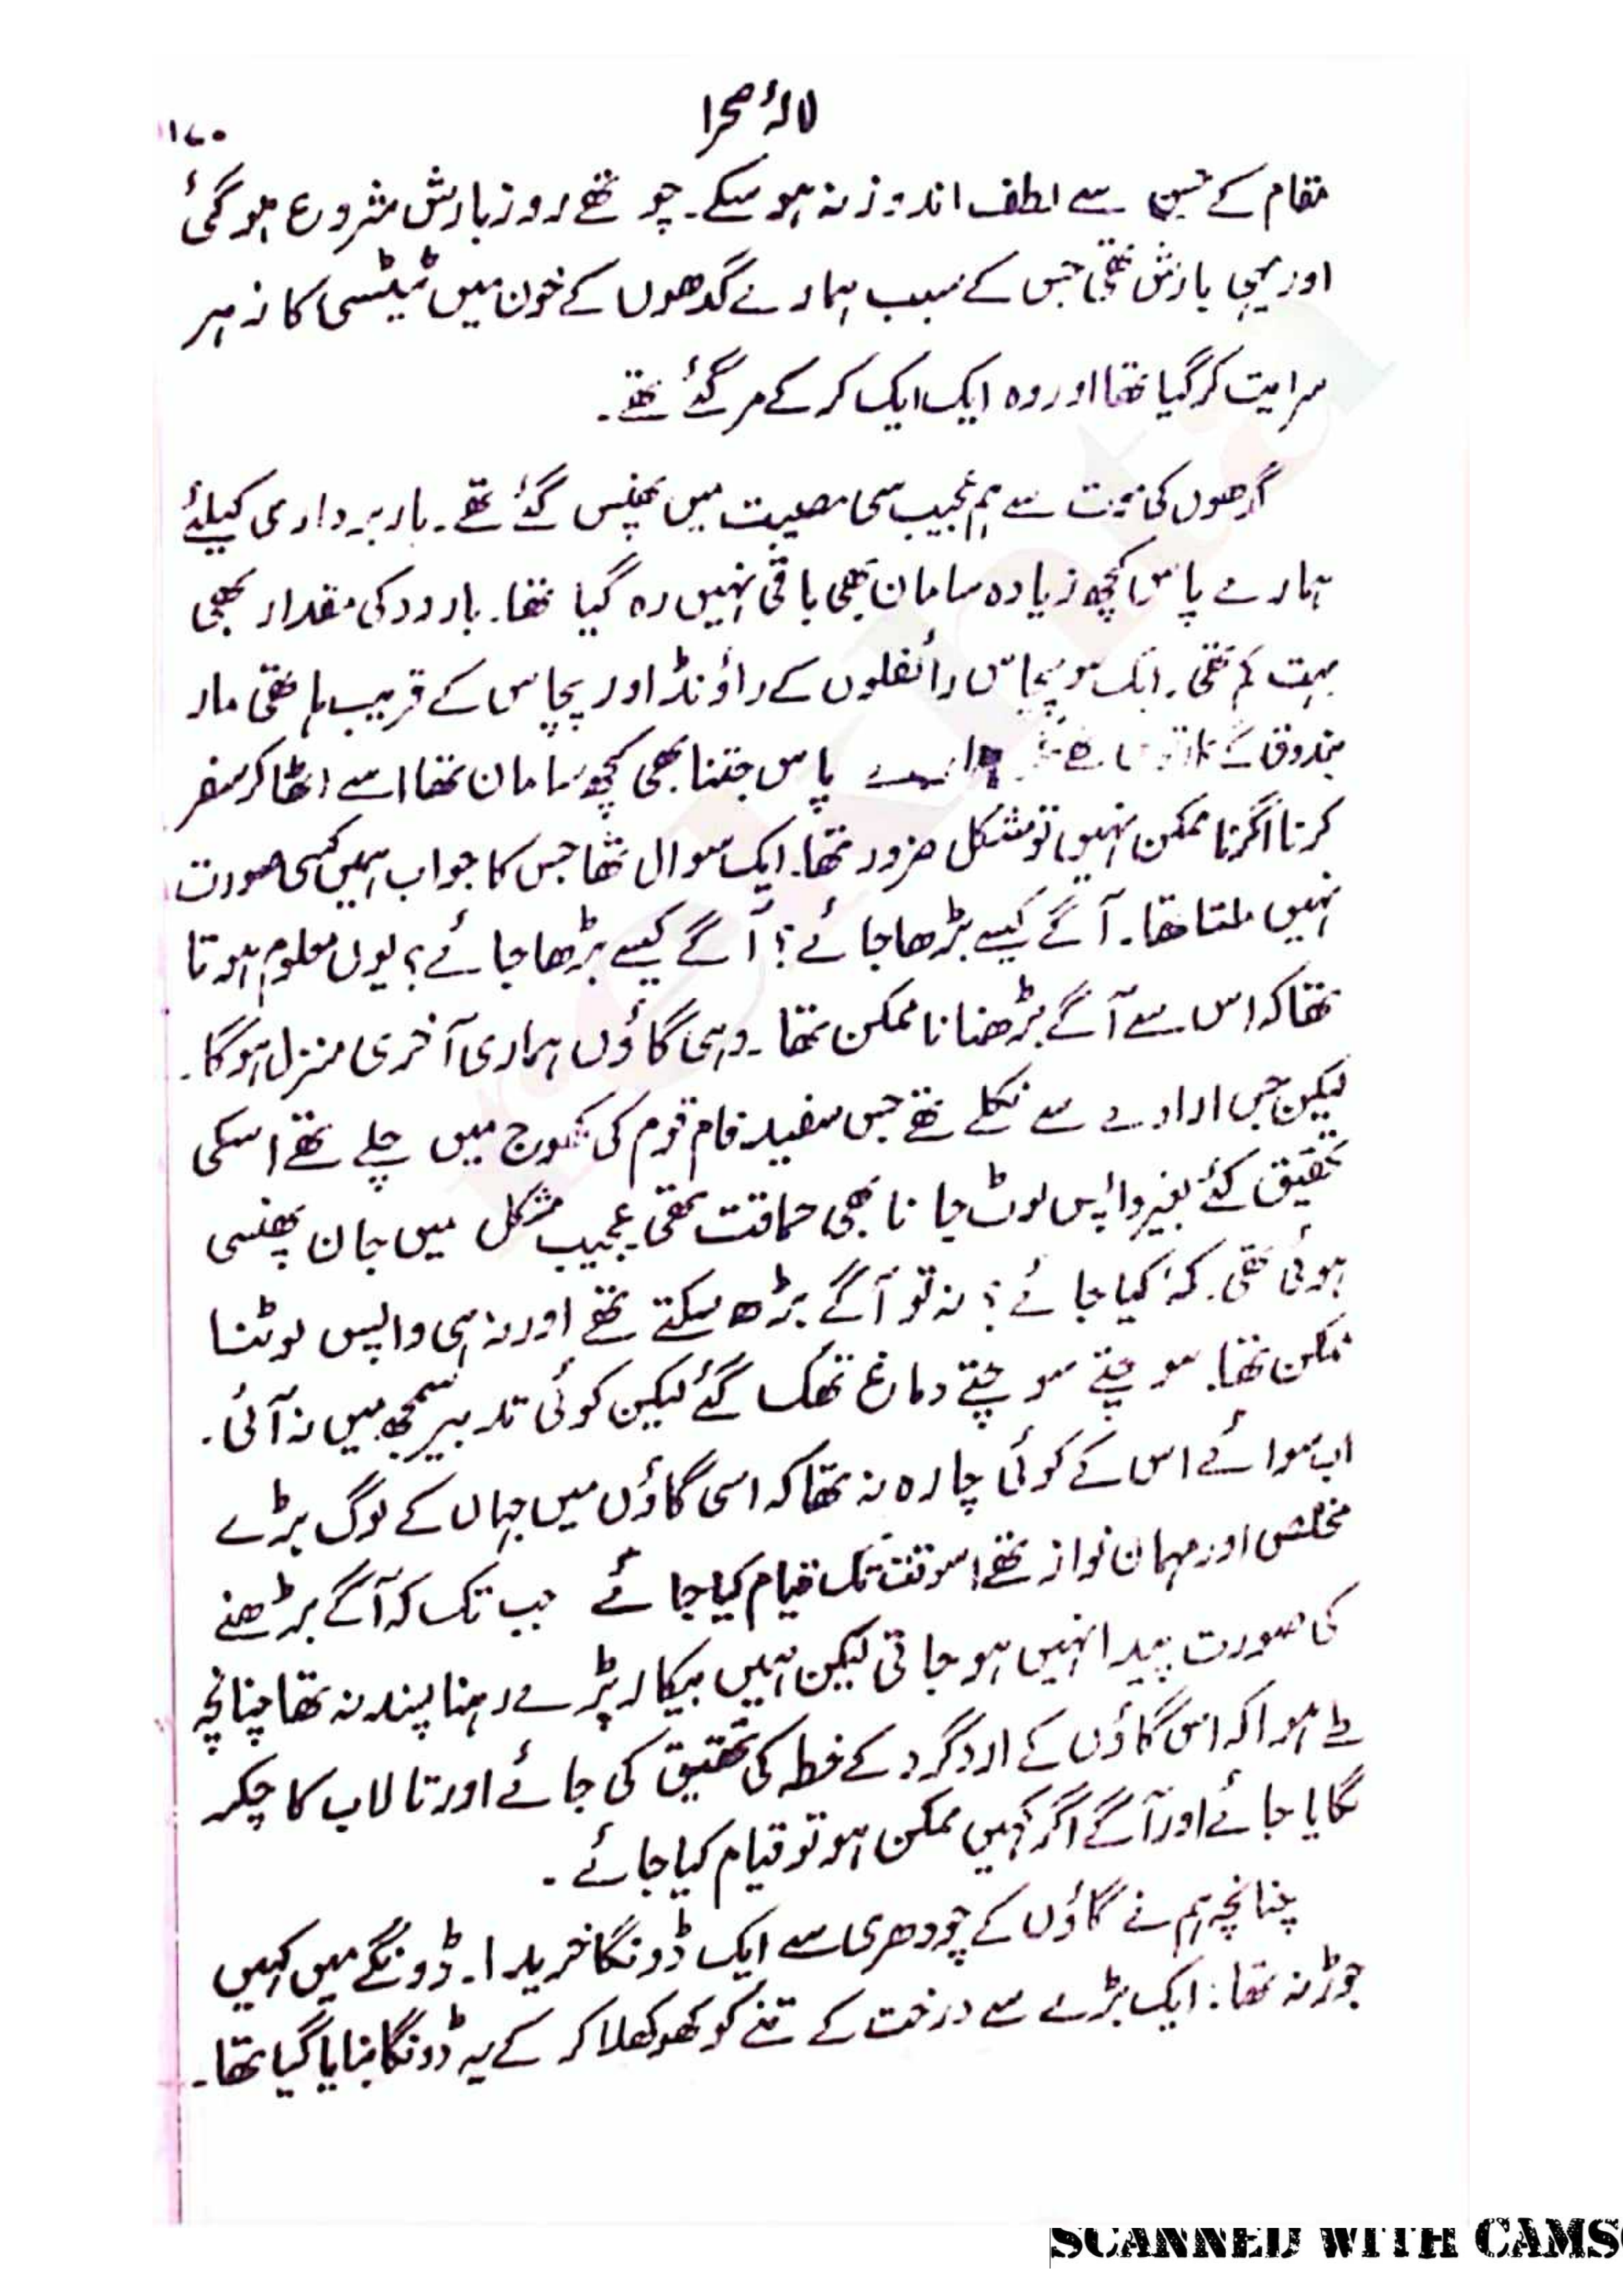 لالۂ صحرا
۱۷۰
مقام کے حسن سے لطف اندوز نہ ہو سکے۔ چوتھے روز بارش شروع ہو گئی
اور یہی بارش تھی جس کے سبب ہمارے گدھوں کے خون میں ٹیٹسی کا زہر
سرایت کر گیا تھا اور وہ ایک ایک کر کے مر گئے تھے۔
گدھوں کی موت سے ہم عجیب سی مصیبت میں پھنس گئے تھے۔ باربرداری کیلئے
ہمارے پاس کچھ زیادہ سامان بھی باقی نہیں رہ گیا تھا۔ بارود کی مقدار بھی
بہت کم تھی۔ ایک سو پچاس رائفلوں کے راؤنڈ اور پچاس کے قریب ہاتھی مار
بندوق کے پاس جتنا بھی کچھ سامان تھا اسے اٹھا کر سفر
کرنا اگر ناممکن نہیں تو مشکل ضرور تھا۔ ایک سوال تھا جس کا جواب ہمیں کسی صورت
نہیں ملتا تھا۔ آگے کیسے بڑھا جائے؟ آگے کیسے بڑھا جائے؟ یوں معلوم ہوتا
تھا کہ اس سے آگے بڑھنا ناممکن تھا۔ وہی گاؤں ہماری آخری منزل ہو گا۔
لیکن جس ارادے سے نکلے تھے جس سفید فام قوم کی کھوج میں چلے تھے اسکی
تحقیق کئے بغیر واپس لوٹ جانا بھی حماقت تھی عجیب مشکل میں جان پھنسی
ہوئی تھی۔ کہ کیا جائے؟ نہ تو آگے بڑھ سکتے تھے اور نہ ہی واپس لوٹنا
ممکن تھا۔ سوچتے سوچتے دماغ تھک گئے لیکن کوئی تدبیر سمجھ میں نہ آئی۔
اب سوائے اس کے کوئی چارہ نہ تھا کہ اسی گاؤں میں جہاں کے لوگ بڑے
مخلص اور مہمان نواز تھے اسوقت تک قیام کیا جائے جب تک کہ آگے بڑھنے
کی صورت پیدا نہیں ہو جاتی لیکن ہمیں بیکار پڑے رہنا پسند نہ تھا چنانچہ
طے ہوا کہ اس گاؤں کے ارد گرد کے خطہ کی تحقیق کی جائے اور تالاب کا چکر
لگایا جائے اور آگے اگر کہیں ممکن ہو تو قیام کیا جائے۔
چنانچہ ہم نے گاؤں کے چودھری سے ایک ڈونگا خریدا۔ ڈونگے میں کہیں
جوڑ نہ تھا۔ ایک بڑے سے درخت کے تنے کو کھوکھلا کر کے یہ ڈونگا بنایا گیا تھا۔
SCANNED WITH CAMS